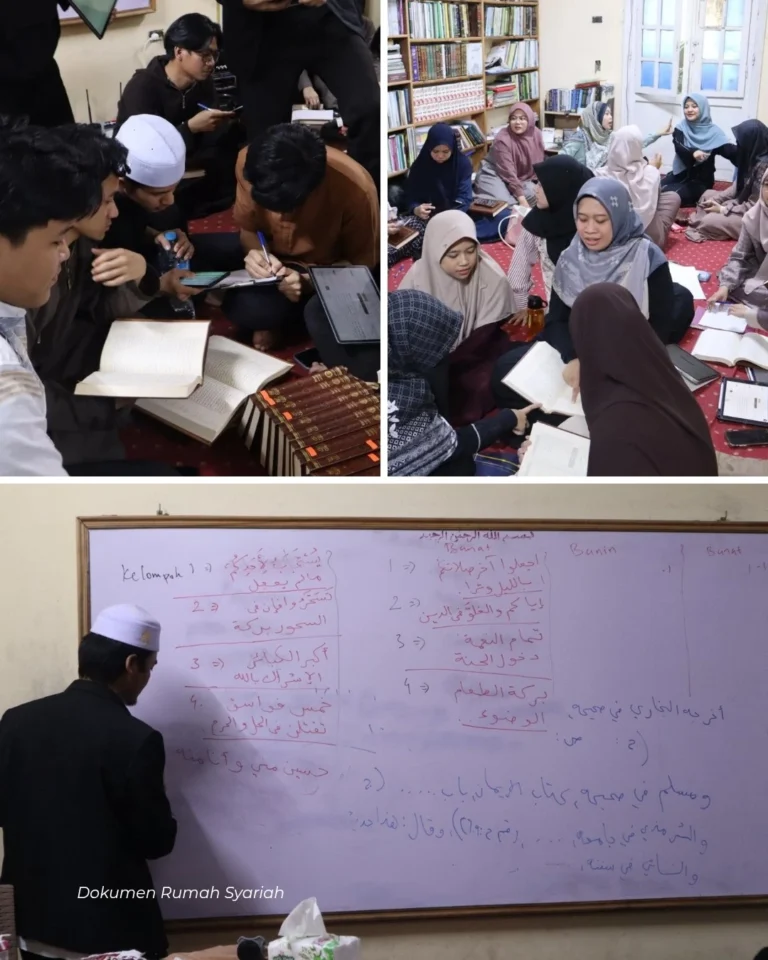 بسم الله الرحمن الرحيم
Banat
Banin
Banat
1 => اجعلوا آخر صلاتكم
بالليل وترا
2 => إياكم والغلو في الدين
3 => تمام النعمة
دخول الجنة
4 => بركة الطعام
الوضوء
Kelompok 1 =>
مالم يعجل
2 => تسحروا فإن في
السحور بركة
3 => أكبر الكبائر
الإشراك بالله
4. خمس فواسق
تقتلن في الحل والحرم
حسين مني وأنا منه
أخرجه البخاري في صحيحه،
ومسلم في صحيحه، كتاب الإيمان، باب ..... (ح
والترمذي في جامعه، .... وقال: هذا حديث
والنسائي في سننه،
Dokumen Rumah Syariah